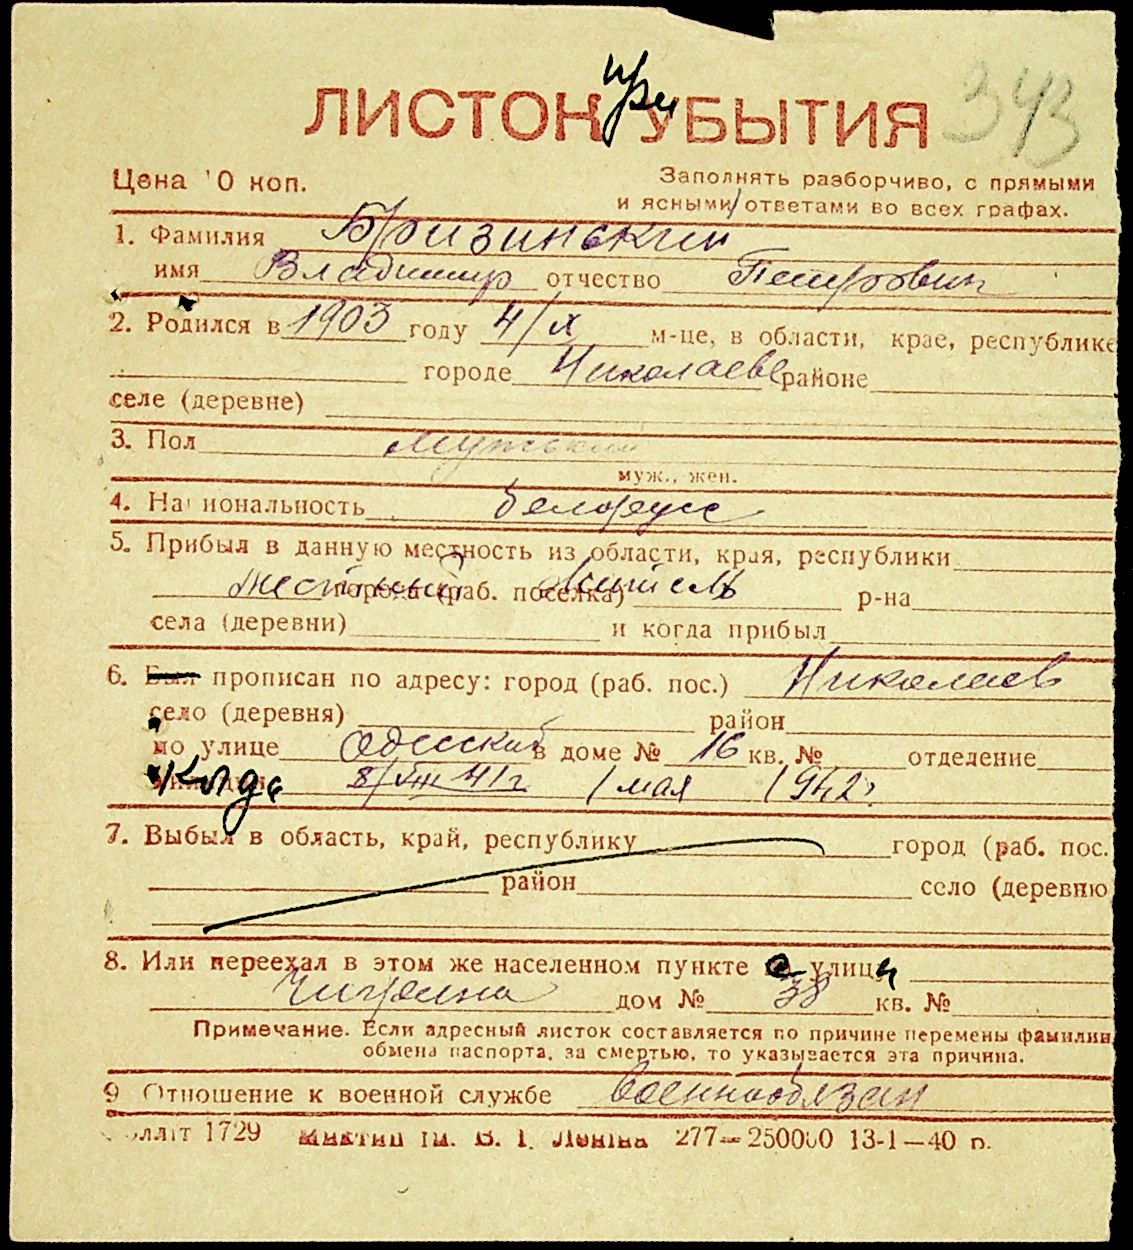 при
ЛИСТОК УБЫТИЯ 343
Цена 10 коп. Заполнять разборчиво, с прямыми
и ясными ответами во всех графах.
1. Фамилия Бризинский
имя Владимир отчество Петрович
2. Родился в 1903 году 4/X м-це, в области, крае, республике
городе Николаеве районе
селе (деревне)
3. Пол мужской
муж., жен.
4. Национальность белорусс
5. Прибыл в данную местность из области, края, республики
местный города (раб. поселка) житель р-на
села (деревни) и когда прибыл
6. Был прописан по адресу: город (раб. пос.) Николаев
село (деревня) район
по улице Одесский в доме № 16 кв. № отделение
Когда 8/VIII 41 г. 1 мая 1942 г.
7. Выбыл в область, край, республику город (раб. пос.
район село (деревню
8. Или переехал в этом же населенном пункте с улицы
Чигрина дом № 38 кв. №
Примечание. Если адресный листок составляется по причине перемены фамилии
обмена паспорта, за смертью, то указывается эта причина.
9 Отношение к военной службе Военнообязан
1729 ім. В. І. Леніна 277—250000 13-1—40 п.